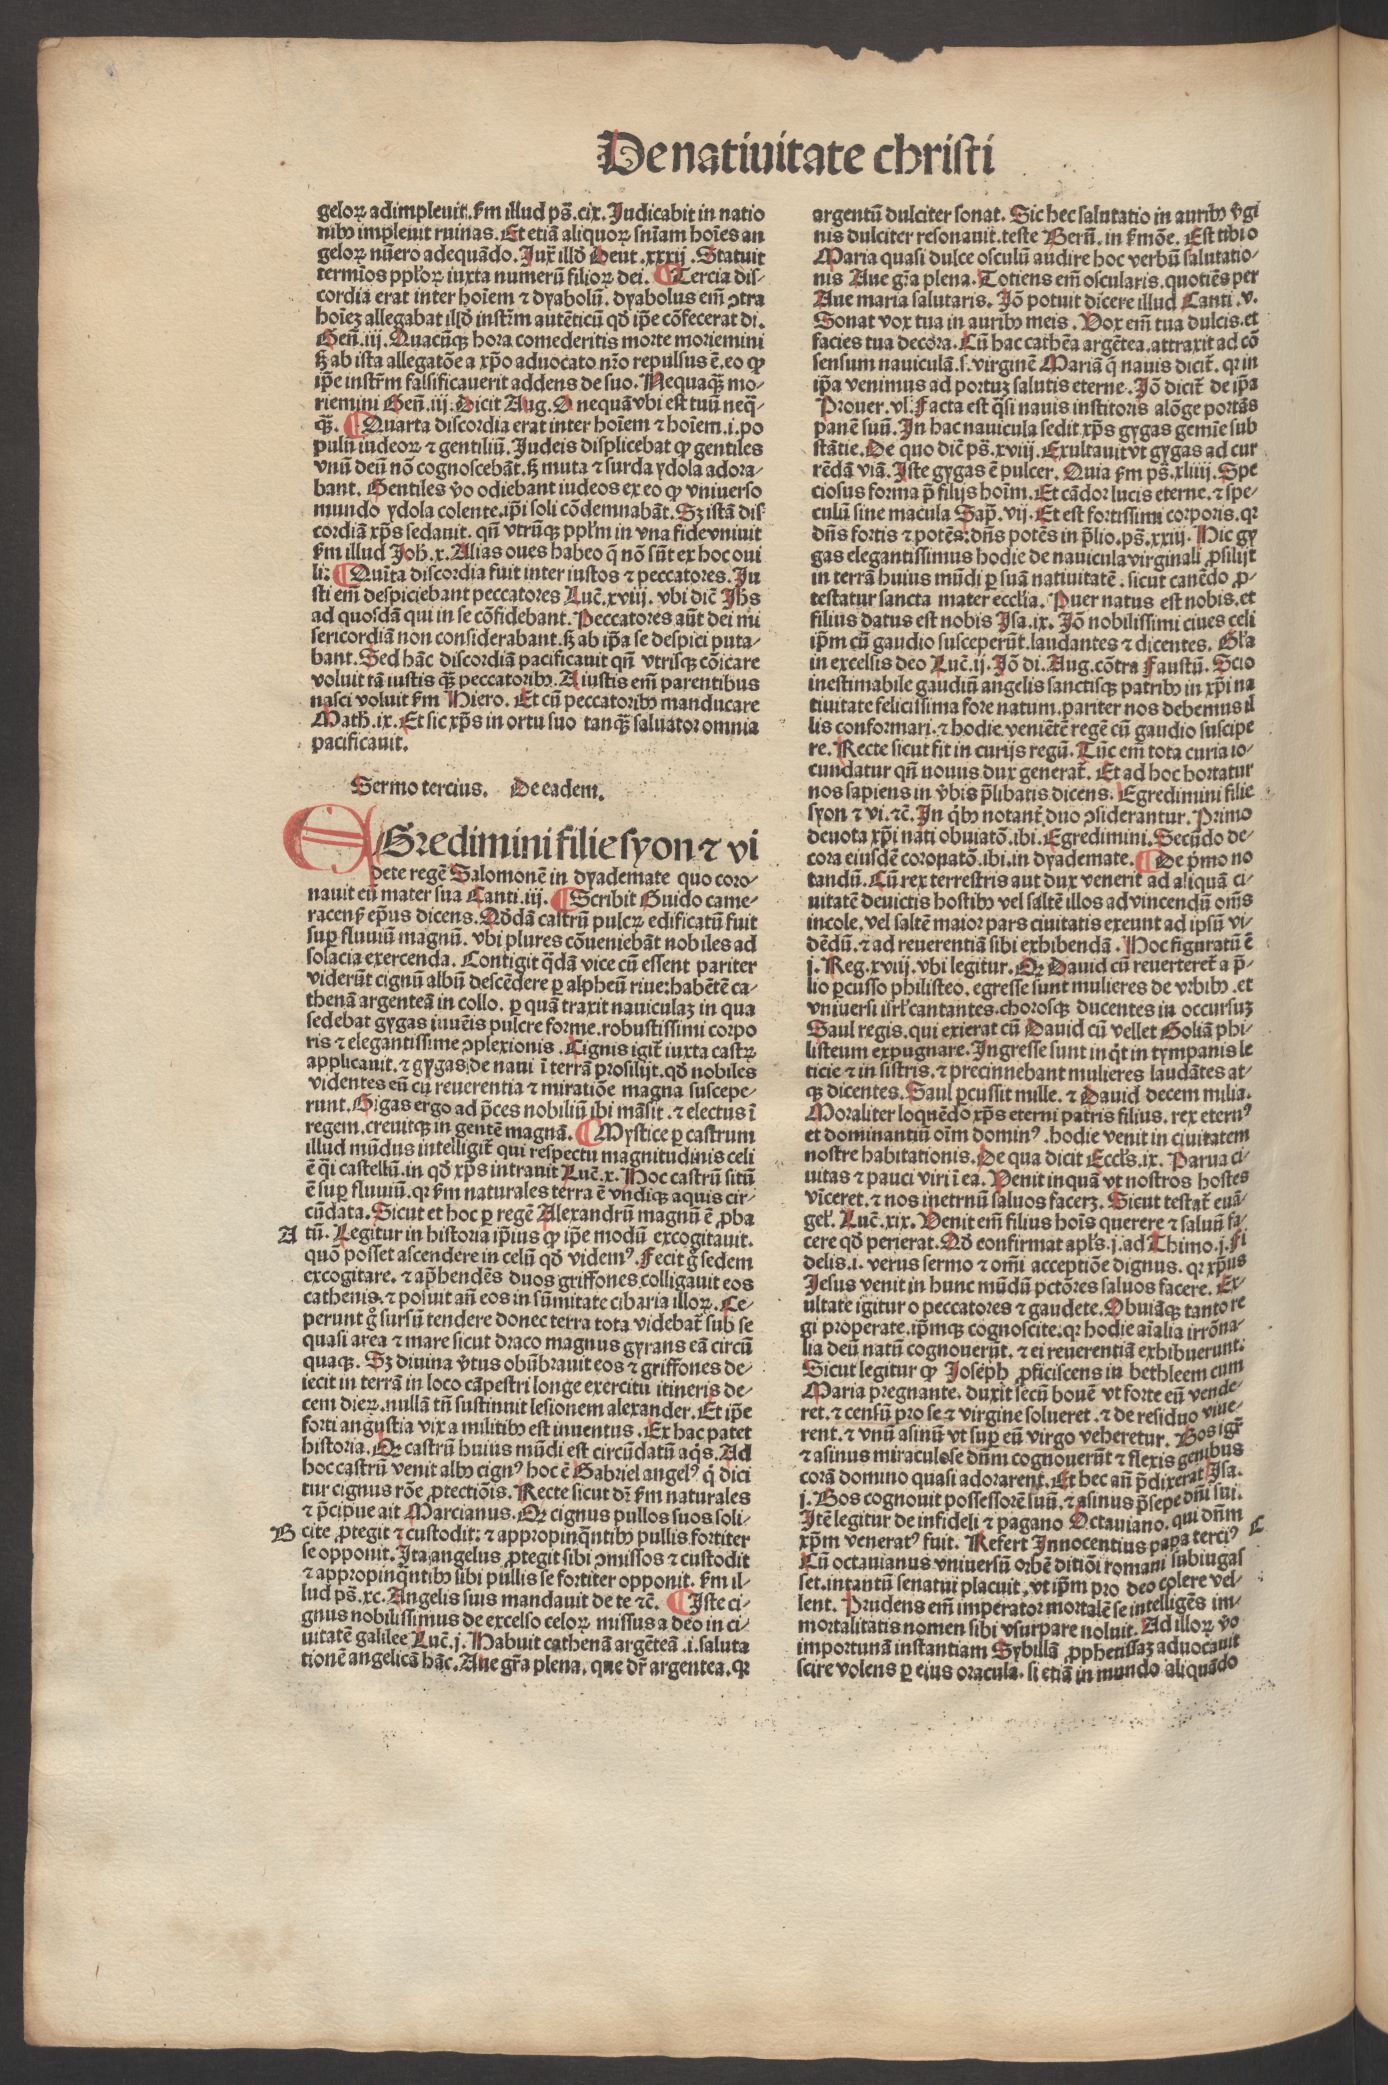 De natiuitate christi
geloꝝ adimpleuit. ẜm illud ps̄. cix. Judicabit in natio
nibꝰ impleuit ruinas. Et etiā aliquoꝝ sn̄iam hoīes an
geloꝝ nūero adequādo. Jux̄ illd̄ Deut̄. xxxij. Statuit
termīos ppl̄oꝝ iuxta numerū filioꝝ dei. ¶ Tercia dis-
cordia erat inter hoīem ⁊ dyabolū. dyabolus em̄ ꝯtra
hoīez allegabat illd̄ instr̄m autēticū qd̄ ip̄e cōfecerat di.
Gen̄. iij. Quacūqꝫ hora comederitis morte moriemini
sꝫ ab ista allegatōe a xp̄o aduocato nr̄o repulsus ē. eo ꝙ
ip̄e instr̄m falsificauerit addens de suo. Nequaqꝫ̄ mo-
riemini Gen̄. iij. Dicit Aug. O nequā vbi est tuū neq̄-
qꝫ̄. ¶ Quarta discordia erat inter hoīem ⁊ hoīem. i. po
pulū iudeoꝝ ⁊ gentiliū. Judeis displicebat ꝙ gentiles
vnū deū nō cognoscebāt. sꝫ muta ⁊ surda ydola adora-
bant. Gentiles v̄o odiebant iudeos ex eo ꝙ vniuerso
mundo ydola colente. ip̄i soli cōdemnabāt. Sꝫ istā dis
cordiā xp̄s sedauit. qn̄ vtrūqꝫ ppl̄m in vna fide vniuit
ẜm illud Joh̄. x. Alias oues habeo q̄ nō sūt ex hoc oui
li: ¶ Quīta discordia fuit inter iustos ⁊ peccatores. Ju
sti em̄ despiciebant peccatores Luc̄. xviij. vbi dic̄ Jh̄s
ad quosdā qui in se cōfidebant. Peccatores aūt dei mi
sericordiā non considerabant. sꝫ ab ip̄a se despici puta-
bant. Sed hāc discordiā pacificauit qn̄ vtrisqꝫ cōicare
voluit tā iustis qꝫ̄ peccatoribꝰ. A iustis em̄ parentibus
nasci voluit ẜm Hiero. Et cū peccatoribꝰ manducare
Math̄. ix. Et sic xp̄s in ortu suo tanqꝫ̄ saluator omnia
pacificauit.
Sermo tercius. De eadem.
EGredimini filie syon ⁊ vi
dete regē Salomonē in dyademate quo coro-
nauit eū mater sua Canti. iij. ¶ Scribit Guido came-
racens̄ ep̄us dicens. Qd̄dā castrū pulcꝝ edificatū fuit
suꝑ fluuiū magnū. vbi plures cōueniebāt nobiles ad
solacia exercenda. Contigit q̄dā vice cū essent pariter
viderūt cignū albū descēdere ꝑ alpheū riue: habētē ca-
thenā argenteā in collo. ꝑ quā traxit nauiculaꝫ in qua
sedebat gygas iuuēis pulcre forme. robustissimi corpo
ris ⁊ elegantissime ꝯplexionis. Cignis igit̄ iuxta castꝝ
applicauit. ⁊ gygas de naui ī terrā prosilijt. qd̄ nobiles
videntes eū cū reuerentia ⁊ miratiōe magna suscepe-
runt. Gigas ergo ad p̄ces nobiliū ibi māsit. ⁊ electus ī
regem. creuitqꝫ in gentē magnā. ¶ Mystice ꝑ castrum
illud mūdus intelligit̄ qui respectu magnitudinis celi
ē q̄i castellū. in qd̄ xp̄s intrauit Luc̄. x. Hoc castrū sitū
ē suꝑ fluuiū. qꝛ ẜm naturales terra ē vndiqꝫ aquis cir-
cūdata. Sicut et hoc ꝑ regē Alexandrū magnū ē ꝓba
A tū. Legitur in historia ip̄ius ꝙ ip̄e modū excogitauit.
quō posset ascendere in celū qd̄ videmꝰ. Fecit g̊ sedem
excogitare. ⁊ ap̄hendēs duos griffones colligauit eos
cathenis. ⁊ posuit an̄ eos in sūmitate cibaria illoꝝ. Ce-
perunt g̊ sursū tendere donec terra tota videbat̄ sub se
quasi area ⁊ mare sicut draco magnus gyrans eā circū
quaqꝫ. Sꝫ diuina v̄tus obūbrauit eos ⁊ griffones de-
iecit in terrā in loco cāpestri longe exercitu itineris de-
cem dieꝝ. nullā tn̄ sustinuit lesionem alexander. Et ip̄e
forti angustia vix a militibꝰ est inuentus. Ex hac patet
historia. Qꝛ castrū huius mūdi est circūdatū aq̄s. Ad
hoc castrū venit albꝰ cignꝰ hoc ē Gabriel angelꝰ q̄ dici
tur cignus rōe ꝓtectiōis. Recte sicut dr̄ ẜm naturales
⁊ p̄cipue ait Marcianus. Qꝛ cignus pullos suos soli-
B cite ꝓtegit ⁊ custodit: ⁊ appropinq̄ntibꝰ pullis fortiter
se opponit. Ita angelus ꝓtegit sibi ꝯmissos ⁊ custodit
⁊ appropinq̄ntibꝰ sibi pullis se fortiter opponit. ẜm il-
lud ps̄. xc. Angelis suis mandauit de te ⁊c̄. ¶ Iste ci-
gnus nobilissimus de excelso celoꝝ missus a deo in ci-
uitatē galilee Luc̄. j. Habuit cathenā argēteā .i. saluta
tionē angelicā hāc. Aue gr̄a plena, que dr̄ argentea. qꝛ
argentū dulciter sonat. Sic hec salutatio in auribꝰ v̄gi
nis dulciter resonauit. teste Bern̄. in ẜmōe. Est tibi o
Maria quasi dulce osculū audire hoc verbū salutatio-
nis Aue gr̄a plena. Totiens em̄ oscularis. quotiēs per
Aue maria salutaris. Jō potuit dicere illud Canti. v.
Sonat vox tua in auribꝰ meis. Vox em̄ tua dulcis. et
facies tua decora. Cū hac cathēa argētea. attraxit ad cō
sensum nauiculā. s. virginē Mariā q̄ nauis dicit̄. qꝛ in
ip̄a venimus ad portuꝫ salutis eterne. Jō dicit̄ de ip̄a
Prouer. vl̄. Facta est q̄si nauis institoris alōge portās
panē suū. In hac nauicula sedit xp̄s gygas gemīe sub
stātie. De quo dic̄ ps̄. xviij. Exultauit vt gygas ad cur
rēdā viā. Iste gygas ē pulcer. Quia ẜm ps̄. xliiij. Spe
ciosus forma p̄ filijs hoīm. Et cādor lucis eterne. ⁊ spe-
culū sine macula Sap̄. vij. Et est fortissimi corporis. qꝛ
dn̄s fortis ⁊ potēs: dn̄s potēs in p̄lio. ps̄. xxiij. Hic gy
gas elegantissimus hodie de nauicula virginali ꝓsilijt
in terrā huius mūdi ꝑ suā natiuitatē. sicut canēdo ꝓ-
testatur sancta mater eccl̄ia. Puer natus est nobis. et
filius datus est nobis Isa. ix. Jō nobilissimi ciues celi
ip̄m cū gaudio susceperūt. laudantes ⁊ dicentes. Gl̄a
in excelsis deo Luc̄. ij. Jō di. Aug. cōtra Faustū. Scio
inestimabile gaudiū angelis sanctisqꝫ patribꝰ in xp̄i na
tiuitate felicissima fore natum. pariter nos debemus il
lis conformari. ⁊ hodie veniētē regē cū gaudio suscipe
re. Recte sicut fit in curijs regū. Tūc em̄ tota curia io-
cundatur qn̄ nouus dux generat̄. Et ad hoc hortatur
nos sapiens in v̄bis p̄libatis dicens. Egredimini filie
syon ⁊ vi. ⁊c̄. In q̄bꝰ notant̄ duo ꝯsiderantur. Primo
deuota xp̄i nati obuiatō. ibi. Egredimini. Secūdo de-
cora eiusdē coronatō. ibi. in dyademate. ¶ De p̄mo no
tandū. Cū rex terrestris aut dux venerit ad aliquā ci-
uitatē deuictis hostibꝰ vel saltē illos ad vincendū om̄s
incole. vel saltē maior pars ciuitatis exeunt ad ipsū vi-
dēdū. ⁊ ad reuerentiā sibi exhibendā. Hoc figuratū ē
j. Reg. xviij. vbi legitur. Qꝛ Dauid cū reuerteret̄ a p̄-
lio ꝑcusso philisteo. egresse sunt mulieres de vrbibꝰ. et
vniuersi isrl̄ cantantes. chorosqꝫ ducentes in occursuꝫ
Saul regis. qui exierat cū Dauid cū vellet Goliā phi-
listeum expugnare. Ingresse sunt inq̄t in tympanis le
ticie ⁊ in sistris. ⁊ precinnebant mulieres laudātes at-
qꝫ dicentes. Saul ꝑcussit mille. ⁊ Dauid decem milia.
Moraliter loquēdo xp̄s eterni patris filius. rex eternꝰ
et dominantiū oīm dominꝰ. hodie venit in ciuitatem
nostre habitationis. De qua dicit Eccl̄s. ix. Parua ci-
uitas ⁊ pauci viri ī ea. Venit inquā vt nostros hostes
vīceret. ⁊ nos inetrnū saluos facerꝫ. Sicut testat̄ euā-
gel̄. Luc̄. xix. Venit em̄ filius hoīs querere ⁊ saluū fa-
cere qd̄ perierat. Qd̄ confirmat apl̄s. j. ad Thimo. j. Fi
delis. i. verus sermo ⁊ om̄i acceptiōe dignus. qꝛ xp̄us
Jesus venit in hunc mūdū pctōres saluos facere. Ex-
ultate igitur o peccatores ⁊ gaudete. Obuiāqꝫ tanto re
gi properate. ip̄mqꝫ cognoscite. qꝛ hodie aīalia irrōna-
lia deū natū cognouerūt. ⁊ ei reuerentiā exhibuerunt.
Sicut legitur ꝙ Joseph ꝓficiscens in bethleem cum
Maria pregnante. duxit secū bouē vt forte eū vende-
ret. ⁊ censū pro se ⁊ virgine solueret. ⁊ de residuo viue-
rent. ⁊ vnū asinū vt suꝑ eū virgo veheretur. ⁊ Bos igr̄
⁊ asinus miraculose dn̄m cognouerūt ⁊ flexis genibus
corā domino quasi adorarent. Et hec an̄ p̄dixerat Isa.
j. Bos cognouit possessorē suū. ⁊ asinus p̄sepe dn̄i sui.
Itē legitur de infideli ⁊ pagano Octauiano. qui dn̄m
xp̄m veneratꝰ fuit. Refert Innocentius papa terciꝰ C
Cū octauianus vniuersū orbē ditiōi romani subiugas
set. intantū senatui placuit. vt ip̄m pro deo colere vel-
lent. Prudens em̄ imperator mortalē se intelligēs im-
mortalitatis nomen sibi vsurpare noluit. Ad illoꝝ v̄o
importunā instantiam Sybillā ꝓphetissaꝫ aduocauit
scire volens ꝑ eius oracula. si etiā in mundo aliquādo